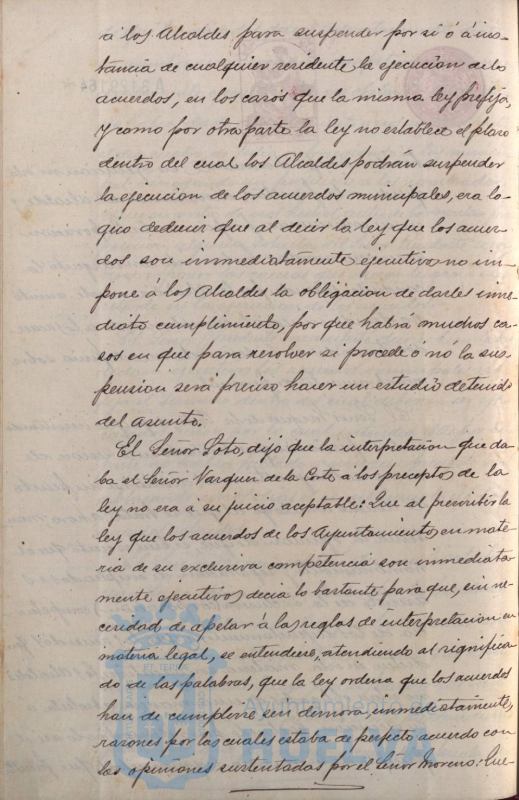 á los Alcaldes para suspender por si ó á ins-
tancia de cualquier residente la ejecucion de los
acuerdos, en los casos que la misma ley prefija,
y como por otra parte la ley no establece el plazo
dentro del cual los Alcaldes podrán suspender
la ejecucion de los acuerdos municipales, era lo-
gico deducir que al decir la ley que los acuer-
dos son inmediatamente ejecutivos no im-
pone á los Alcaldes la obligacion de darles inme-
diato cumplimiento, por que habrá muchos ca-
sos en que para resolver si procede ó nó la sus-
pension será preciso hacer un estudio detenido
del asunto.
El Señor Soto, dijo que la interpretacion que da-
ba el Señor Vazquez de la Corte á los preceptos de la
ley no era á su juicio aceptable: Que al prescribir la
ley que los acuerdos de los Ayuntamientos en mate-
ria de su exclusiva competencia son inmediata-
mente ejecutivos decia lo bastante para que, sin ne-
cesidad de apelar á las reglas de interpretacion en
materia legal, se entendiese, atendiendo al significa-
do de las palabras, que la ley ordena que los acuerdos
han de cumplirse sin demora, inmediatamente,
razones por las cuales estaba de perfecto acuerdo con
las opiniones sustentadas por el Señor Moreno: Que